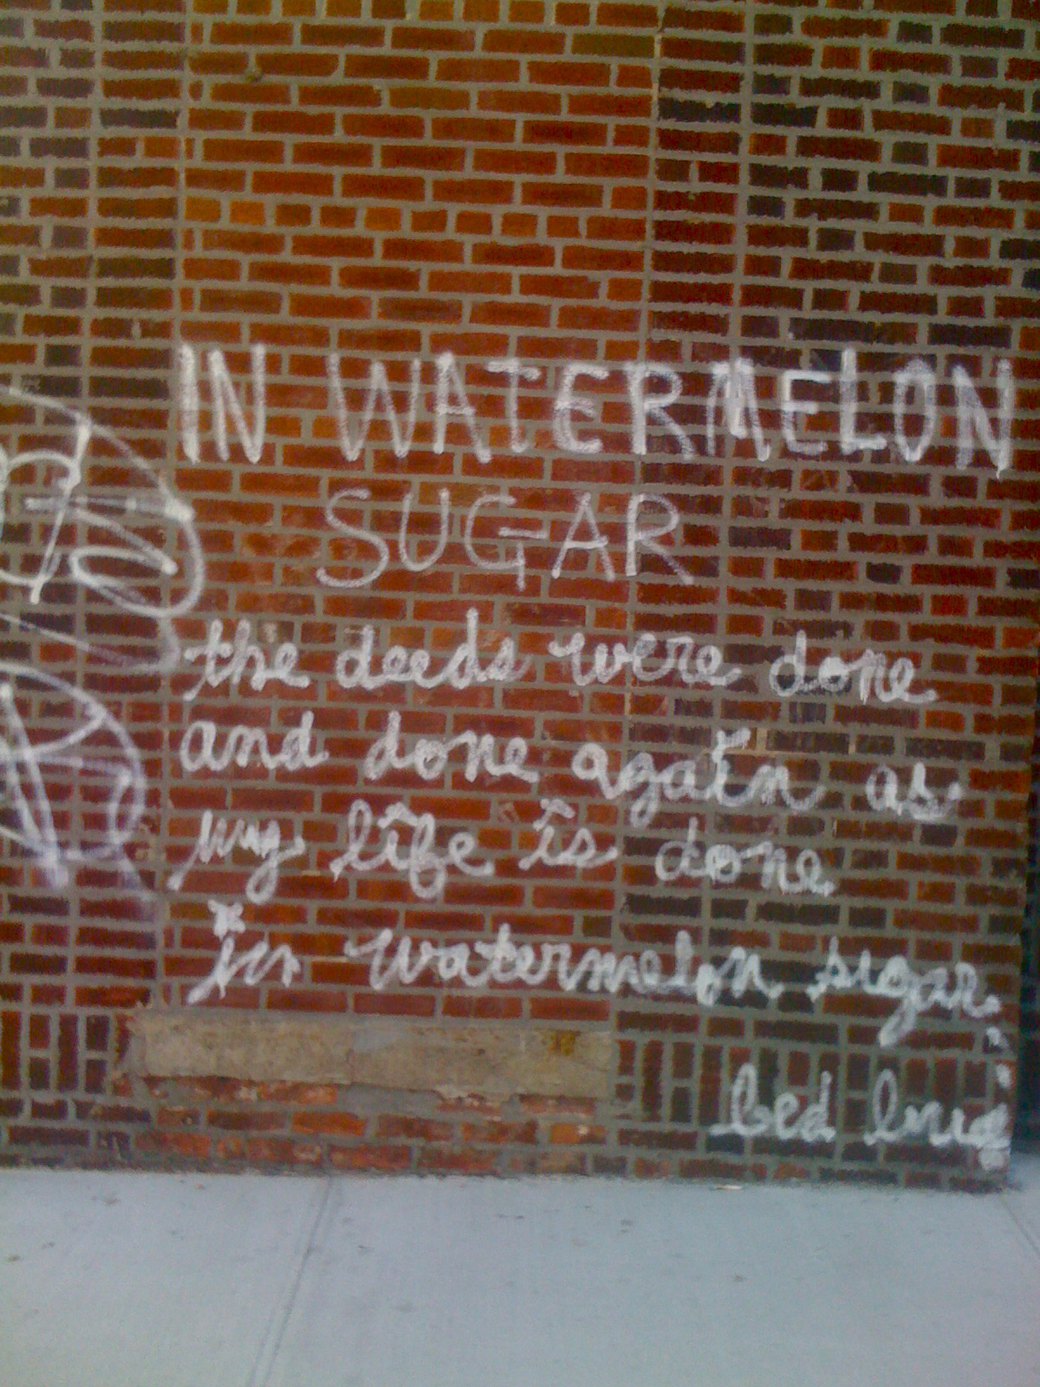 IN WATERMELON
SUGAR
the deeds were done
and done again as
my life is done
in watermelon sugar.
bed bug